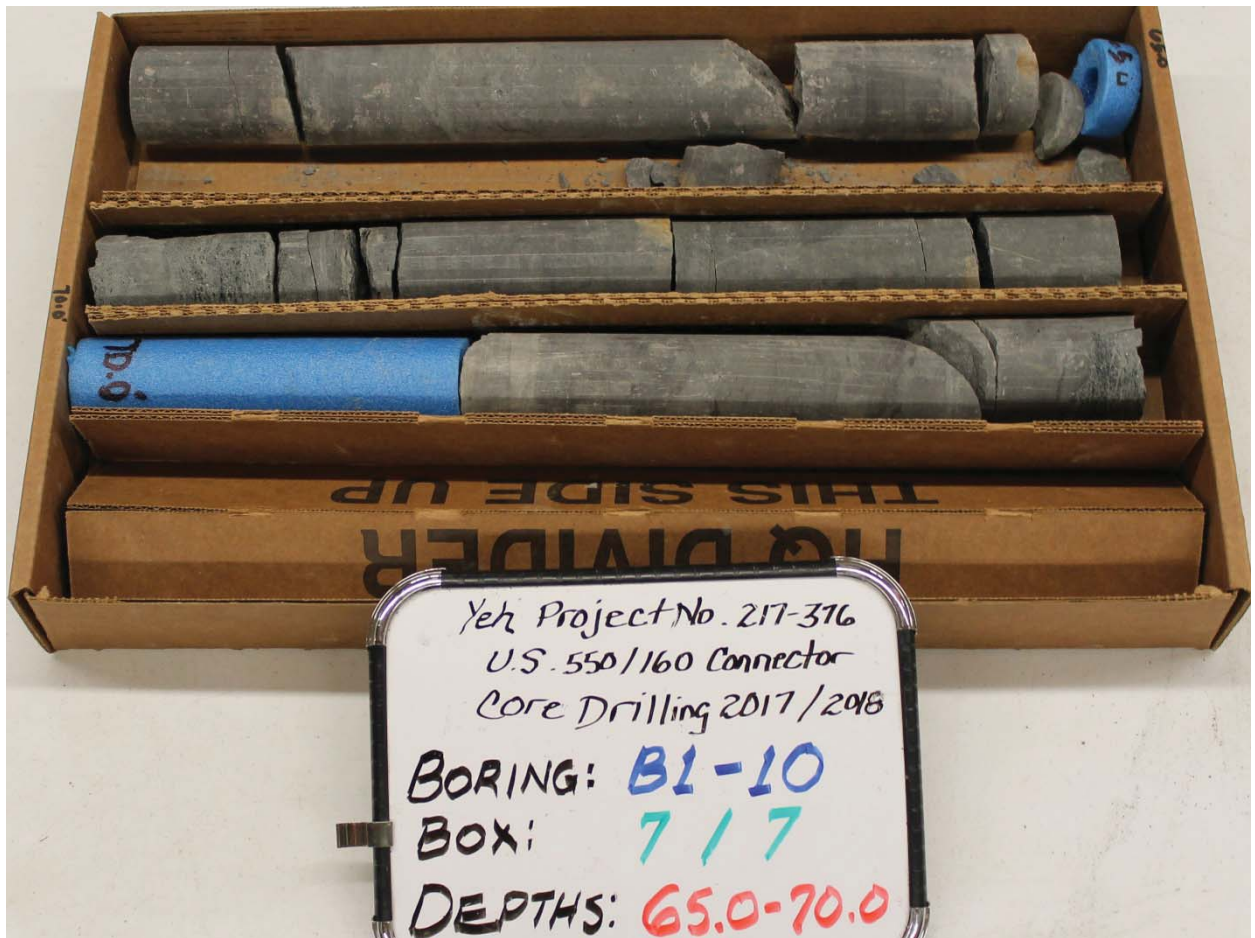 65.0
70.0'
70.0'
THIS SIDE UP
HQ DIVIDER
Yeh Project No. 217-376
U.S. 550/160 Connector
Core Drilling 2017/2018
BORING: B1-10
BOX: 7 / 7
DEPTHS: 65.0-70.0